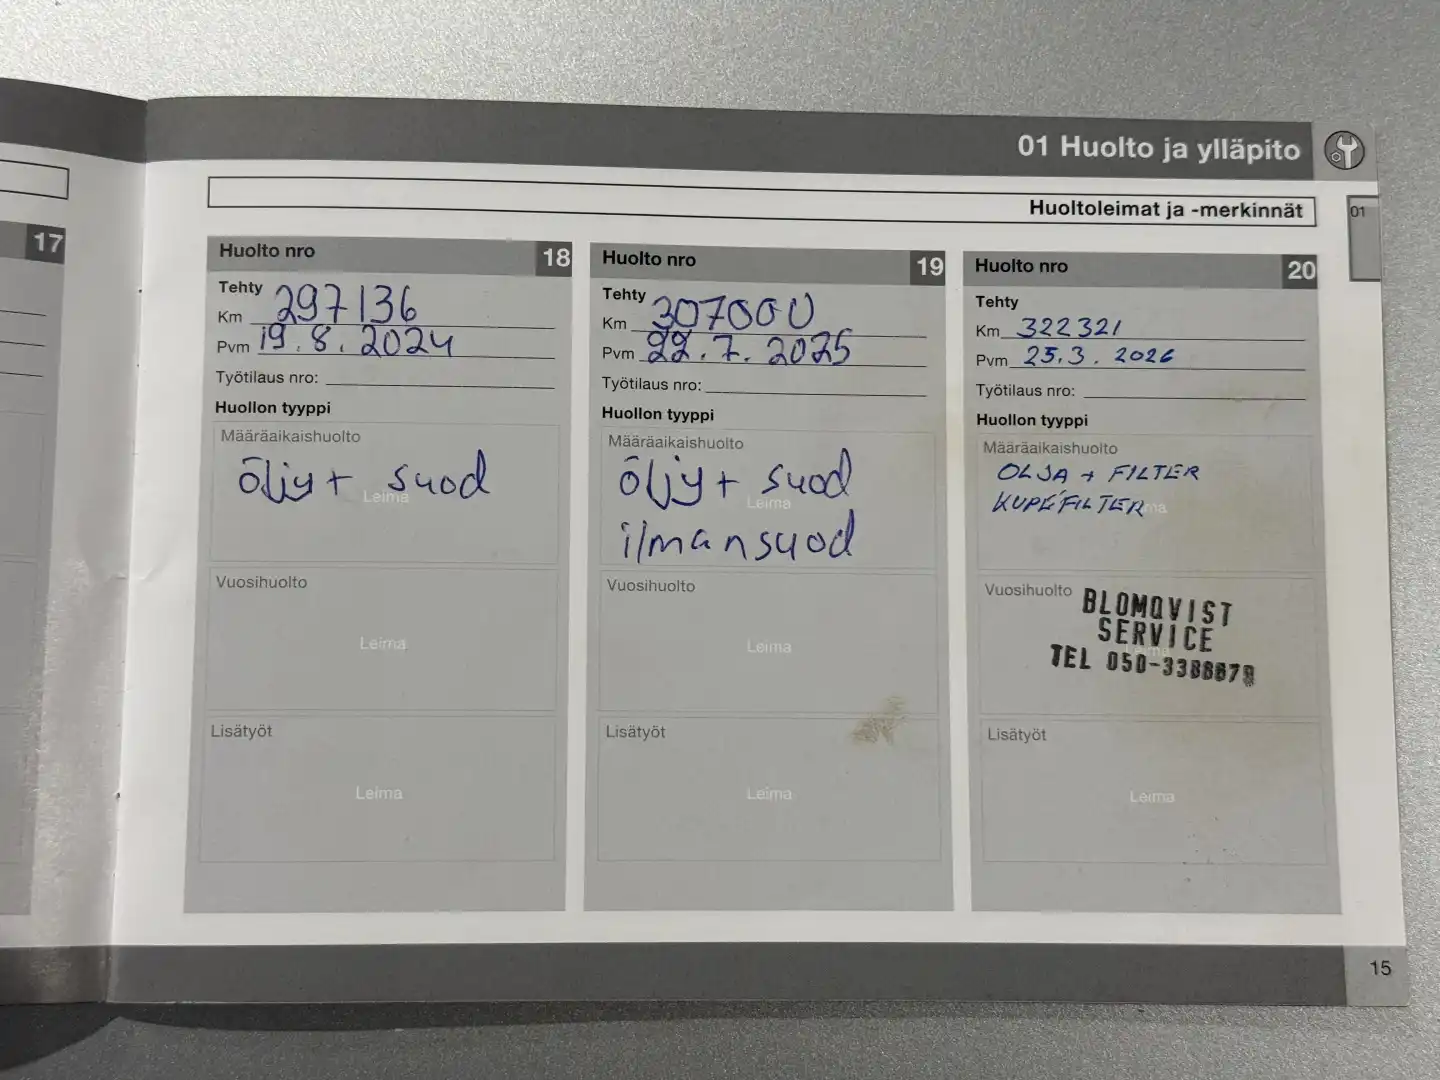 01 Huolto ja ylläpito
Huoltoleimat ja -merkinnät
01
17
Huolto nro 18
Tehty
Km 297136
Pvm 19.8.2024
Työtilaus nro:
Huollon tyyppi
Määräaikaishuolto
öljy + suod
Leima
Vuosihuolto
Leima
Lisätyöt
Leima
Huolto nro 19
Tehty
Km 307000
Pvm 22.7.2025
Työtilaus nro:
Huollon tyyppi
Määräaikaishuolto
öljy + suod
Leima
ilmansuod
Vuosihuolto
Leima
Lisätyöt
Leima
Huolto nro 20
Tehty
Km 322321
Pvm 25.3.2026
Työtilaus nro:
Huollon tyyppi
Määräaikaishuolto
OLJA + FILTER
KUPÉFILTER
Vuosihuolto
BLOMQVIST
SERVICE
TEL
Lisätyöt
Leima
15